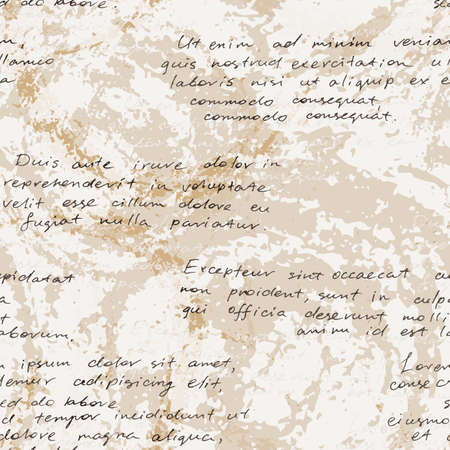 ed do labore.
m,
llamco
Ut enim ad minim venian
quis nostrud exercitation u
laboris nisi ut aliquip ex e
commodo consequat,
commodo consequat.
Duis aute irure dolor in
reprehenderit in voluptate
velit esse cillum dolore eu
fugiat nulla pariatur
Excepteur sint occaecat cu
non proident, sunt in culpa
qui officia deserunt molli
anim id est la
pidatat
t
aborum.
m ipsum dolor sit amet,
adipisicing elit,
ed do labore.
d tempor incididunt ut
dolore magna aliqua,
Lorem
consec
se
eiusmo
et